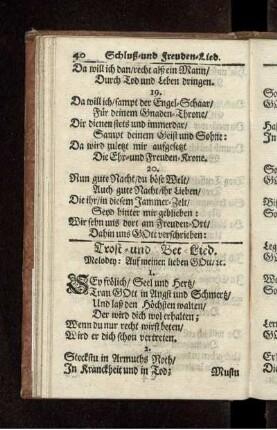 40 Schluß-und Freuden-Lied.
Da will ich dan/recht alß ein Mann/
Durch Tod und Leben dringen.
19.
Da will ich/sampt der Engel-Schaar/
Für deinem Gnaden-Throne/
Dir dienen stets und immerdar/
Sampt deinem Geist und Sohne:
Da wird zuletzt mir auffgesetzt
Die Ehr-und Freuden-Krone.
20.
Nun gute Nacht/du böse Welt/
Auch gute Nacht/ihr Lieben/
Die ihr/in diesem Jammer-Zelt/
Seyd hinter mir geblieben:
Wir sehn uns dort am Freuden-Ort/
Dahin uns GOtt verschrieben:
Trost-und Bet-Lied.
Melodey: Auf meinen lieben GOtt/ rc.
1.
SEy frölich/ Seel und Hertz/
Trau GOtt in Angst und Schmertz/
Und laß den Höchsten walten/
Der wird dich wol erhalten;
Wenn du nur recht wirst beten/
Wird er dich schon vertreten.
2.
Steckstu in Armuths Noth/
In Kranckheit und in Tod;
Mustu